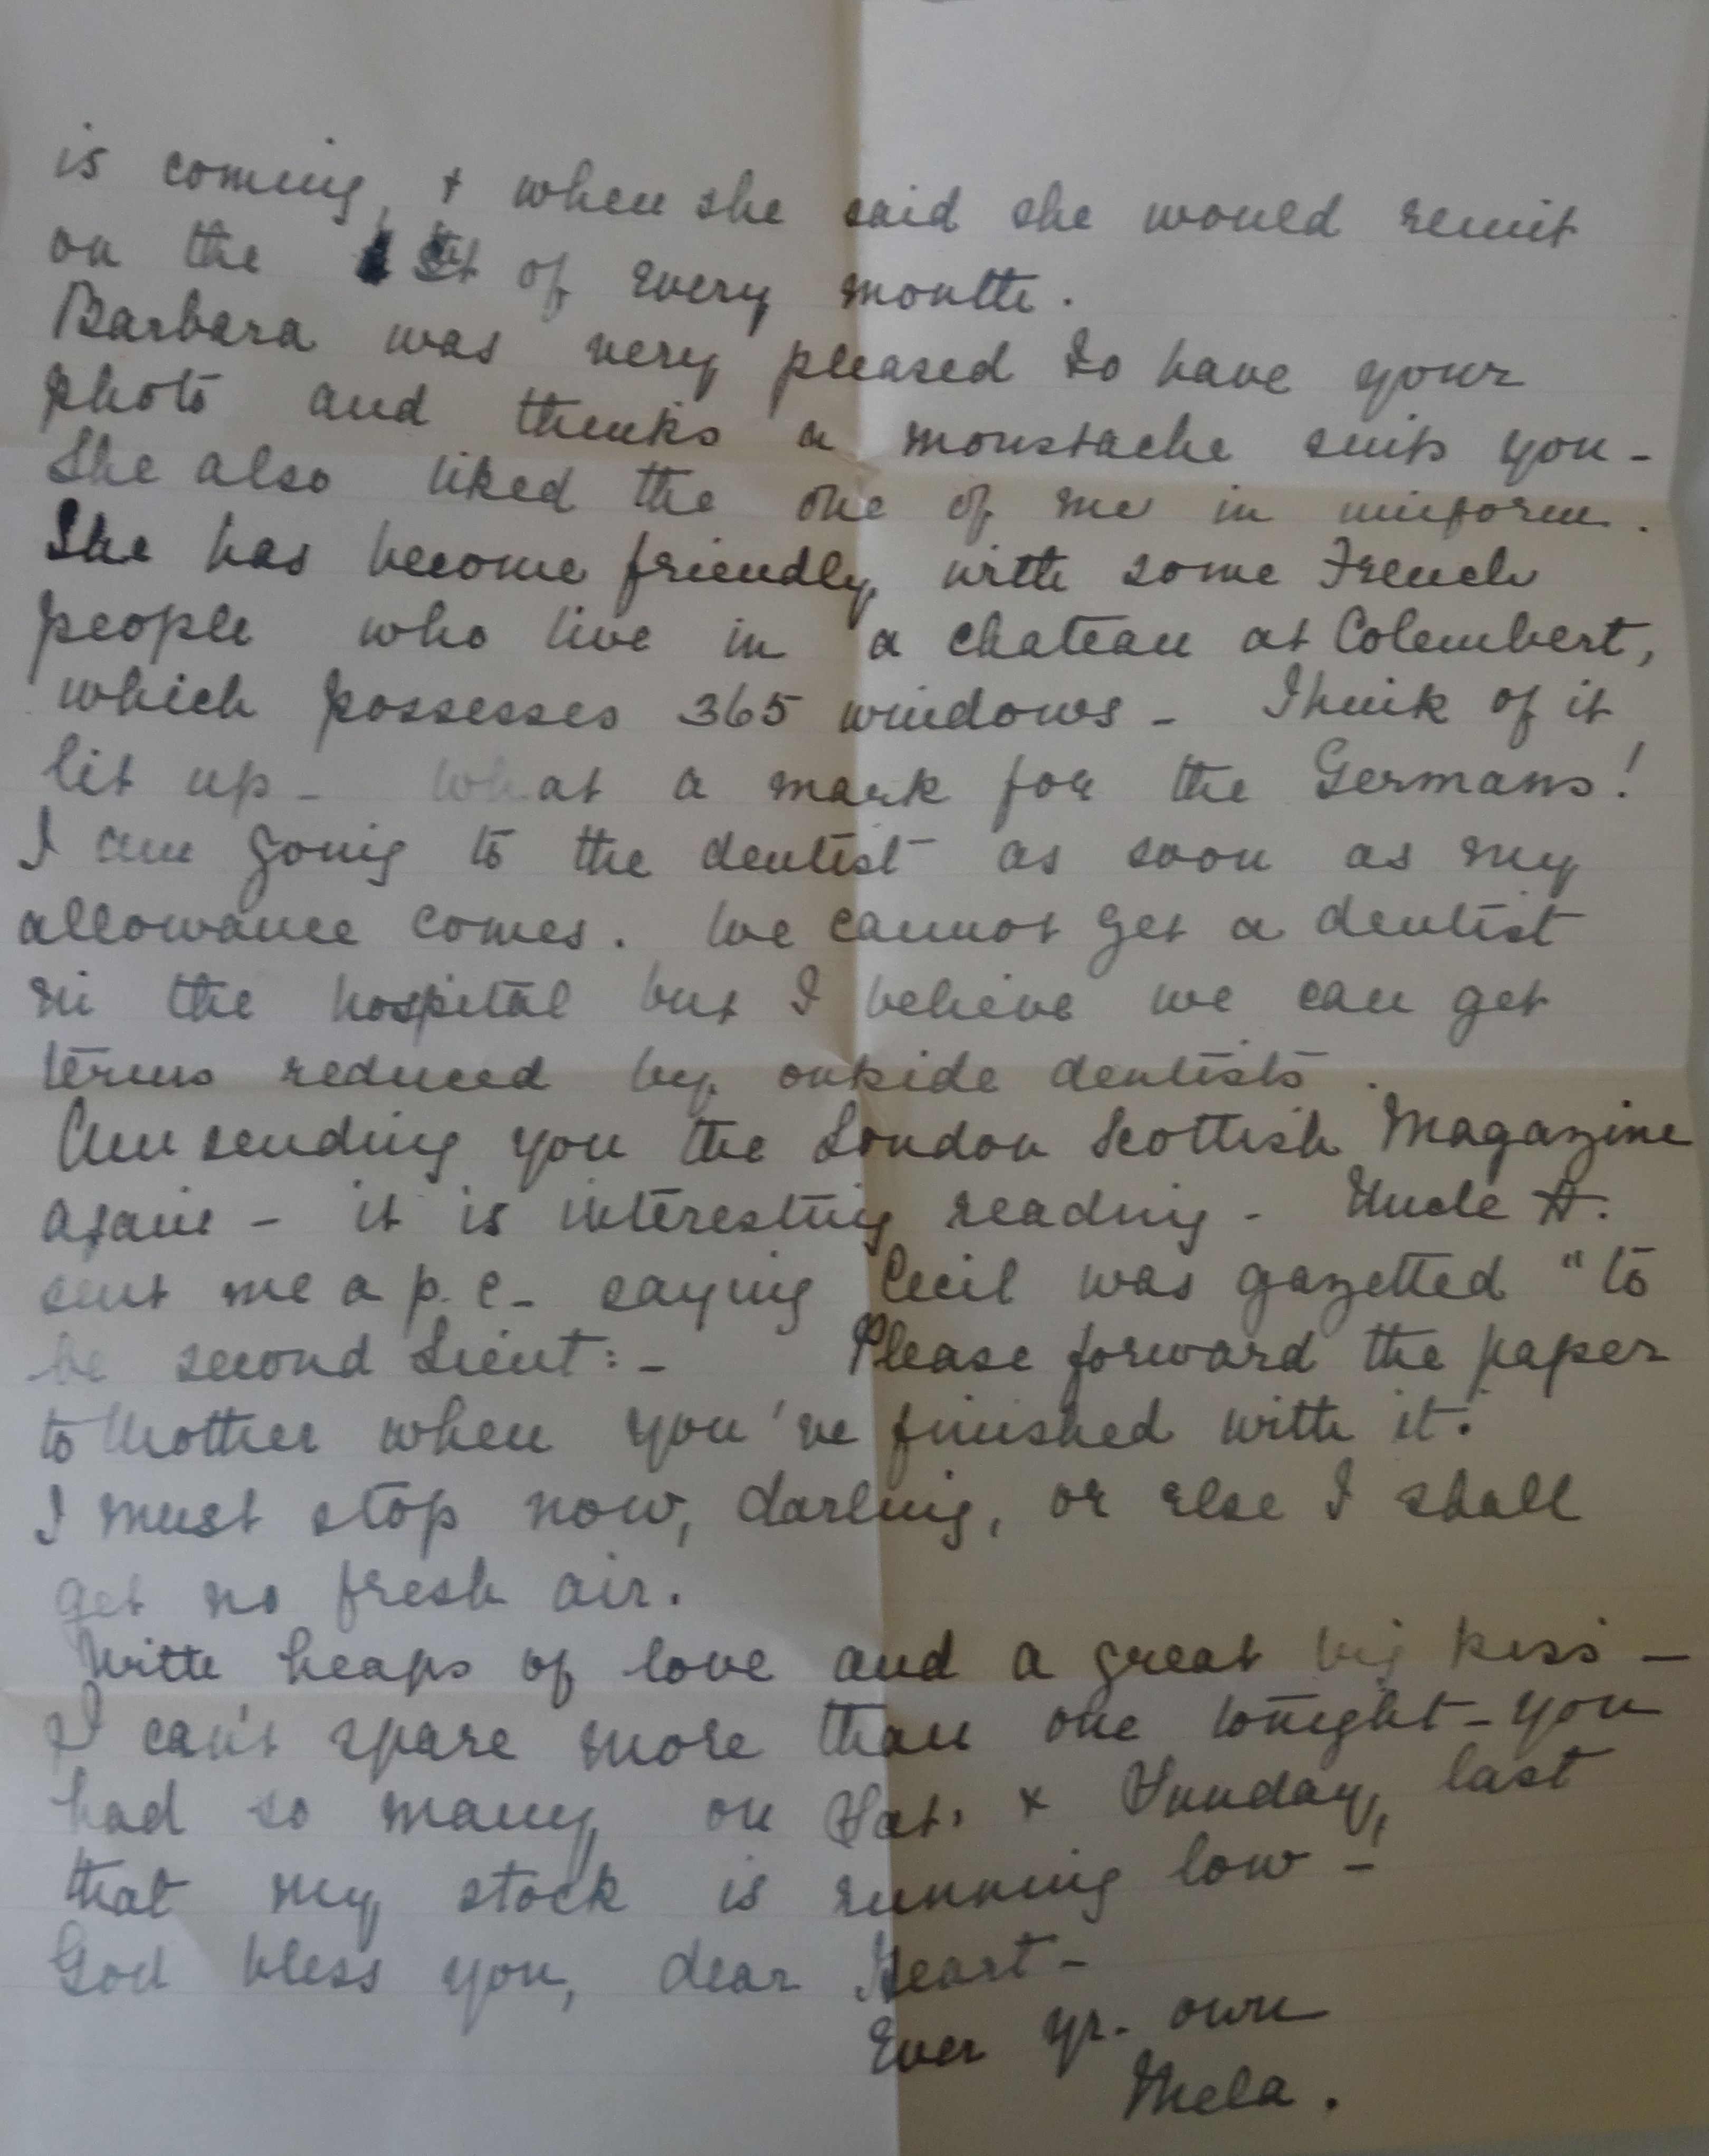 is coming, + when she said she would remit
on the 1st of every month.
Barbara was very pleased to have your
photo and thinks a moustache suits you -
She also liked the one of me in uniform.
She has become friendly with some French
people who live in a chateau at Colembert,
which possesses 365 windows - Think of it
lit up - What a mark for the Germans!
I am going to the dentist as soon as my
allowance comes. We cannot get a dentist
in the hospital but I believe we can get
terms reduced by outside dentists.
Am sending you the London Scottish Magazine
again - it is interesting reading - Uncle A.
sent me a p.c. - saying Cecil was gazetted "to
be second Lieut: - Please forward the paper
to Mother when you've finished with it.
I must stop now, darling, or else I shall
get no fresh air.
With heaps of love and a great big kiss -
I can't spare more than one tonight - you
had so many on Sat. + Sunday, last
that my stock is running low -
God bless you, dear Heart -
Ever yr. own